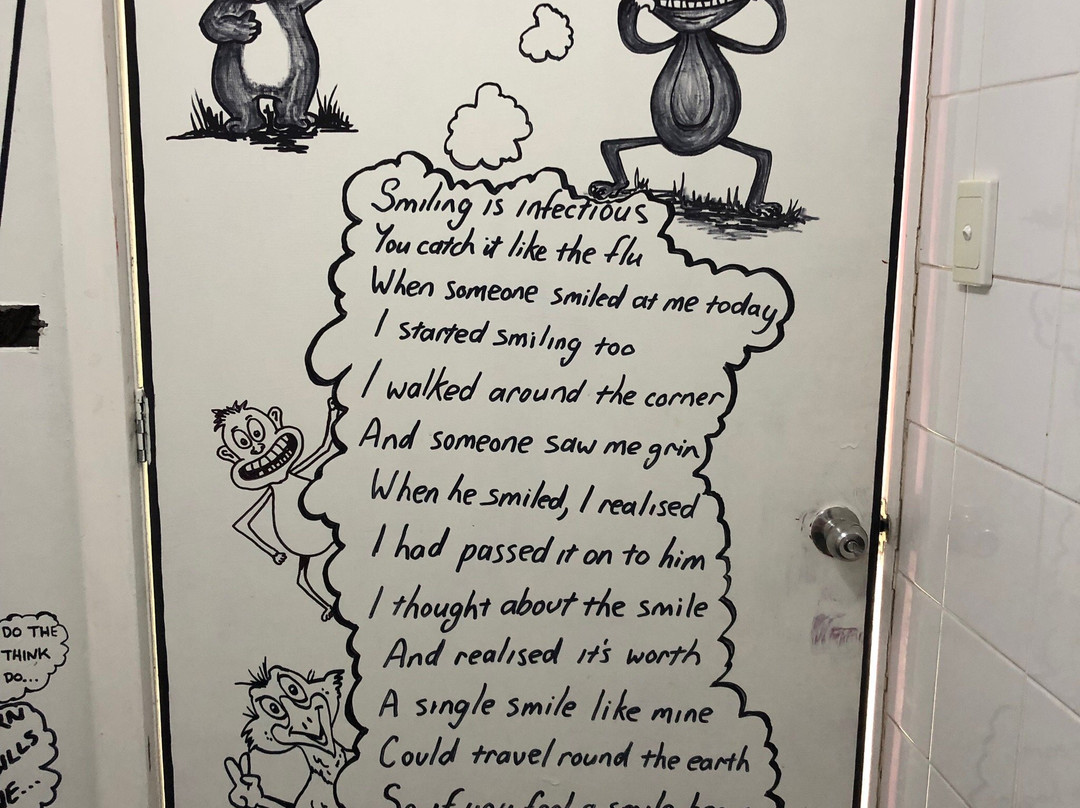 Smiling is infectious
You catch it like the flu
When someone smiled at me today
I started smiling too
I walked around the corner
And someone saw me grin
When he smiled, I realised
I had passed it on to him
I thought about the smile
And realised it's worth
A single smile like mine
Could travel round the earth
So if you feel a smile
DO THE
THINK
DO...